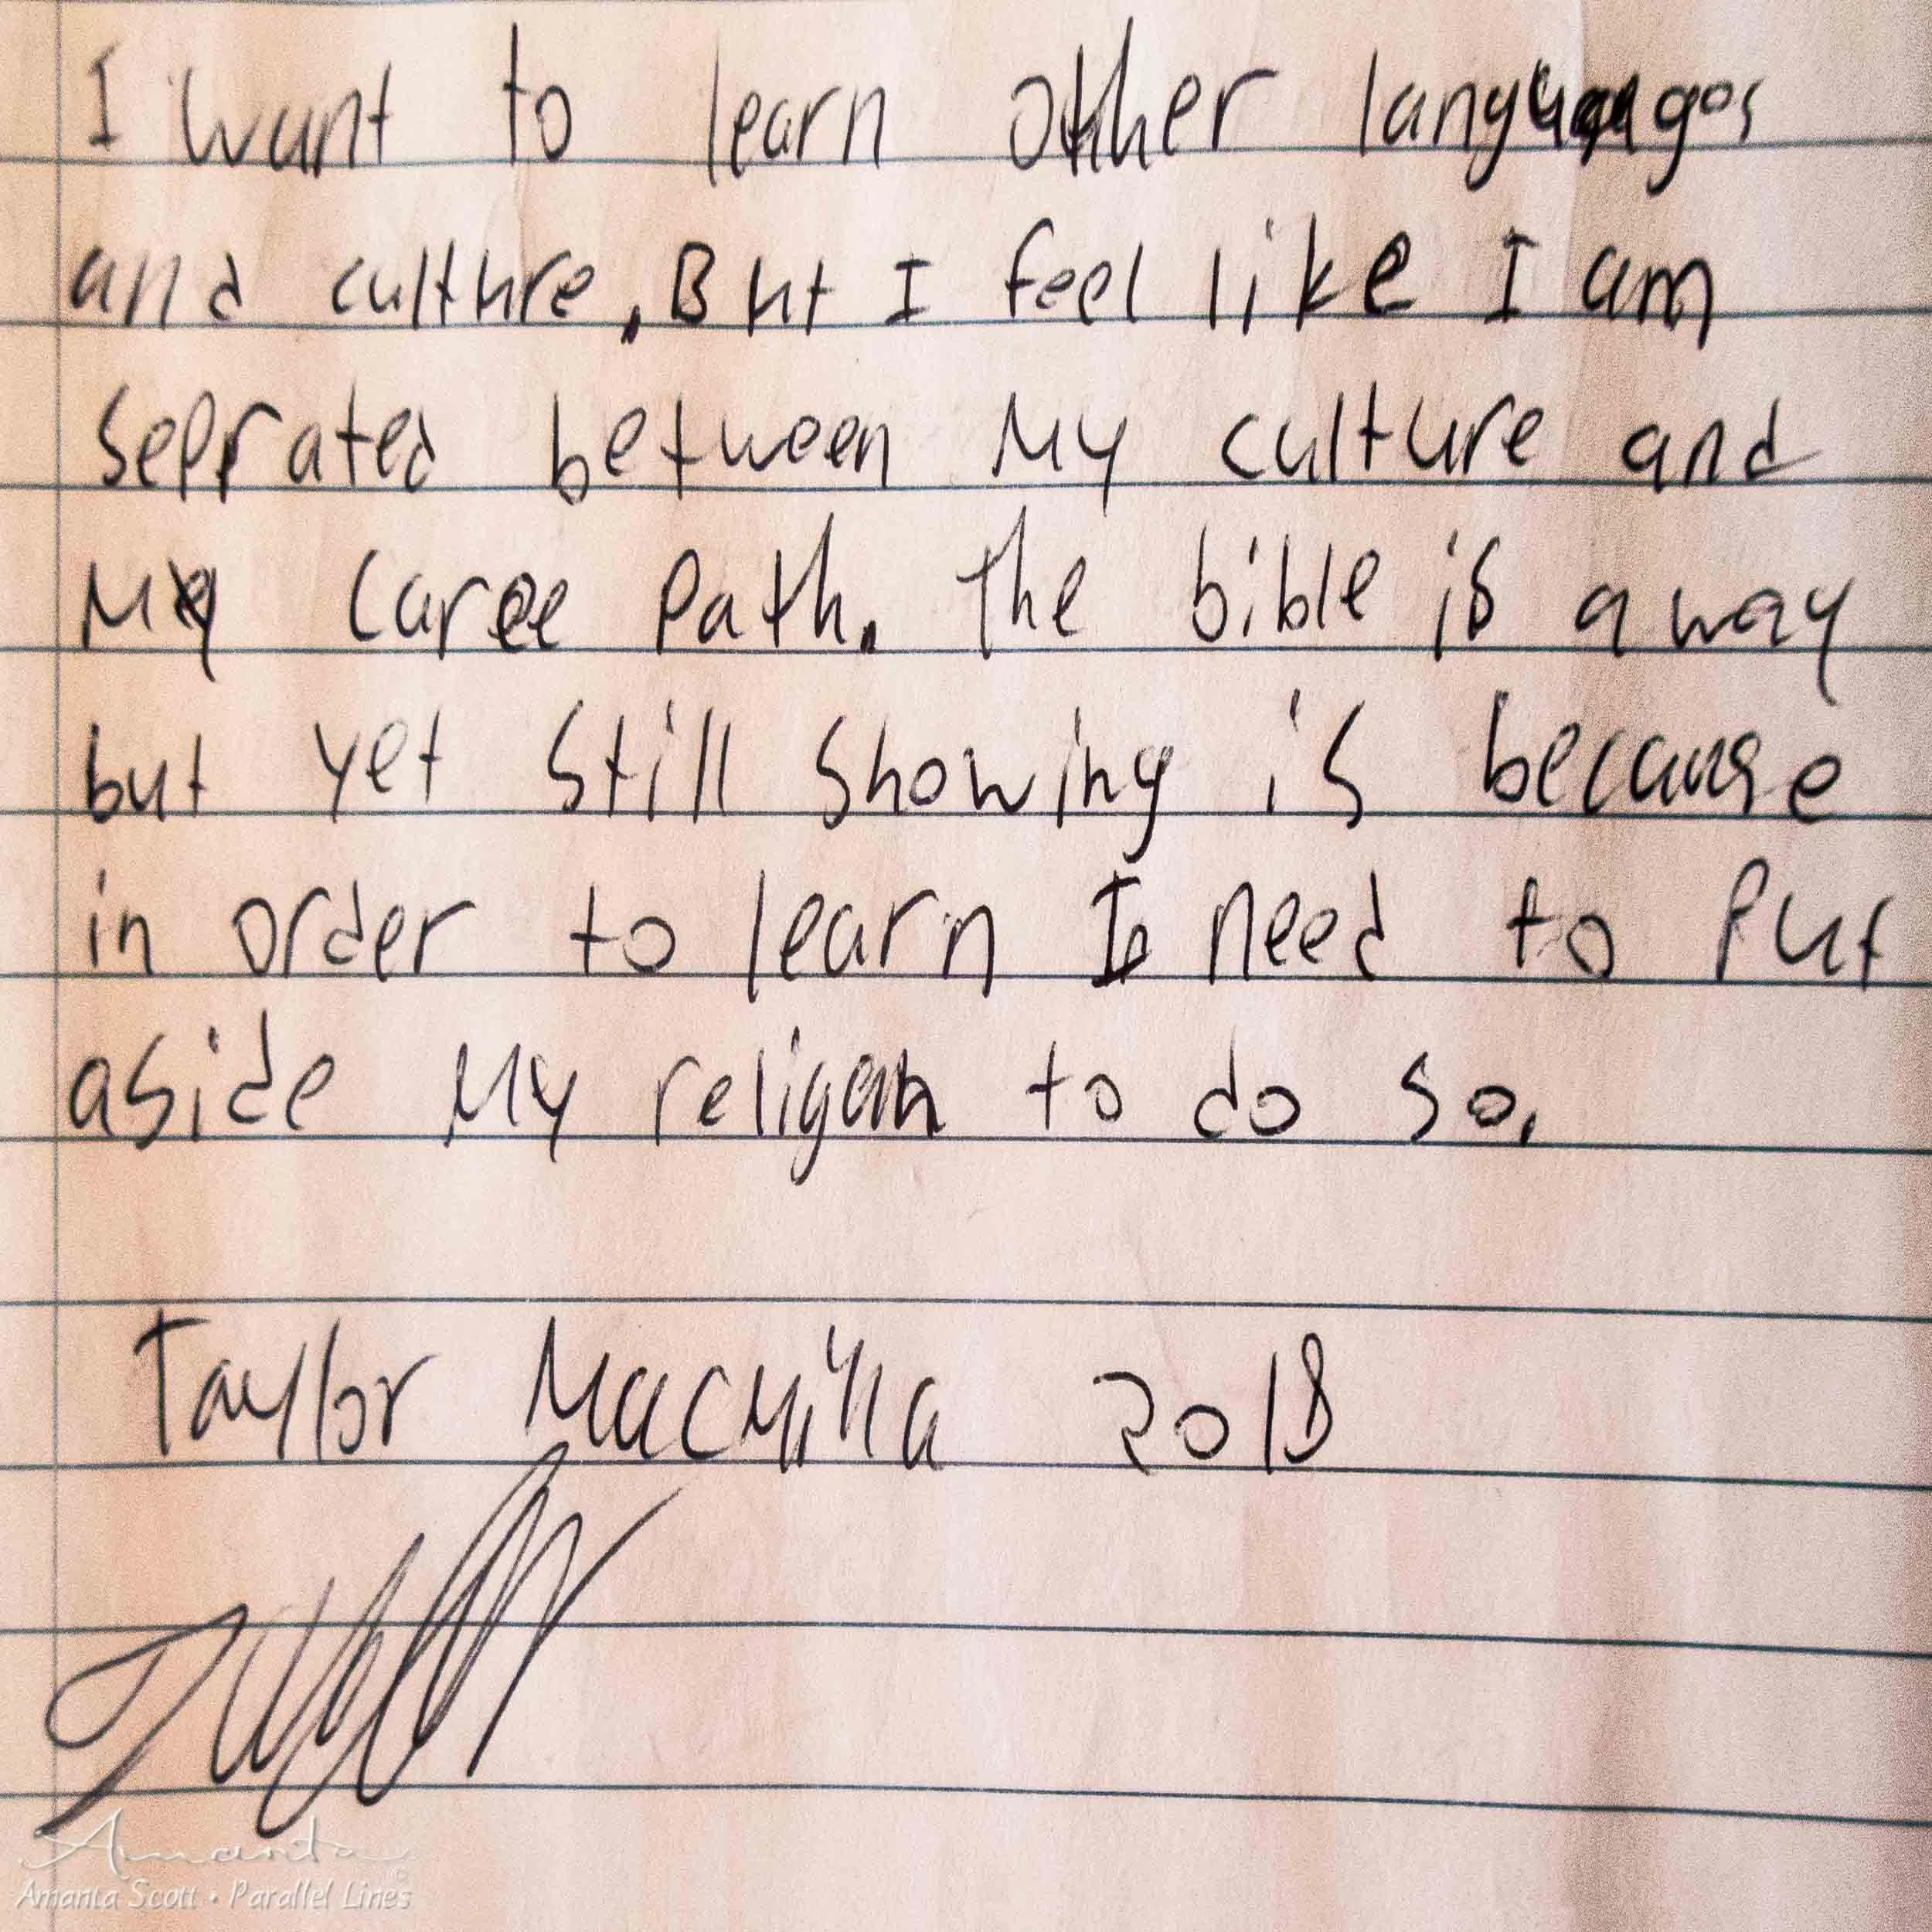 I want to learn other languages
and culture, But I feel like I am
seprated between My culture and
My caree Path. The bible is away
but yet still showing is because
in order to learn I need to Put
aside My religon to do so.
Taylor Macmilla 2018
Amanta
Amanta Scott • Parallel Lines ©